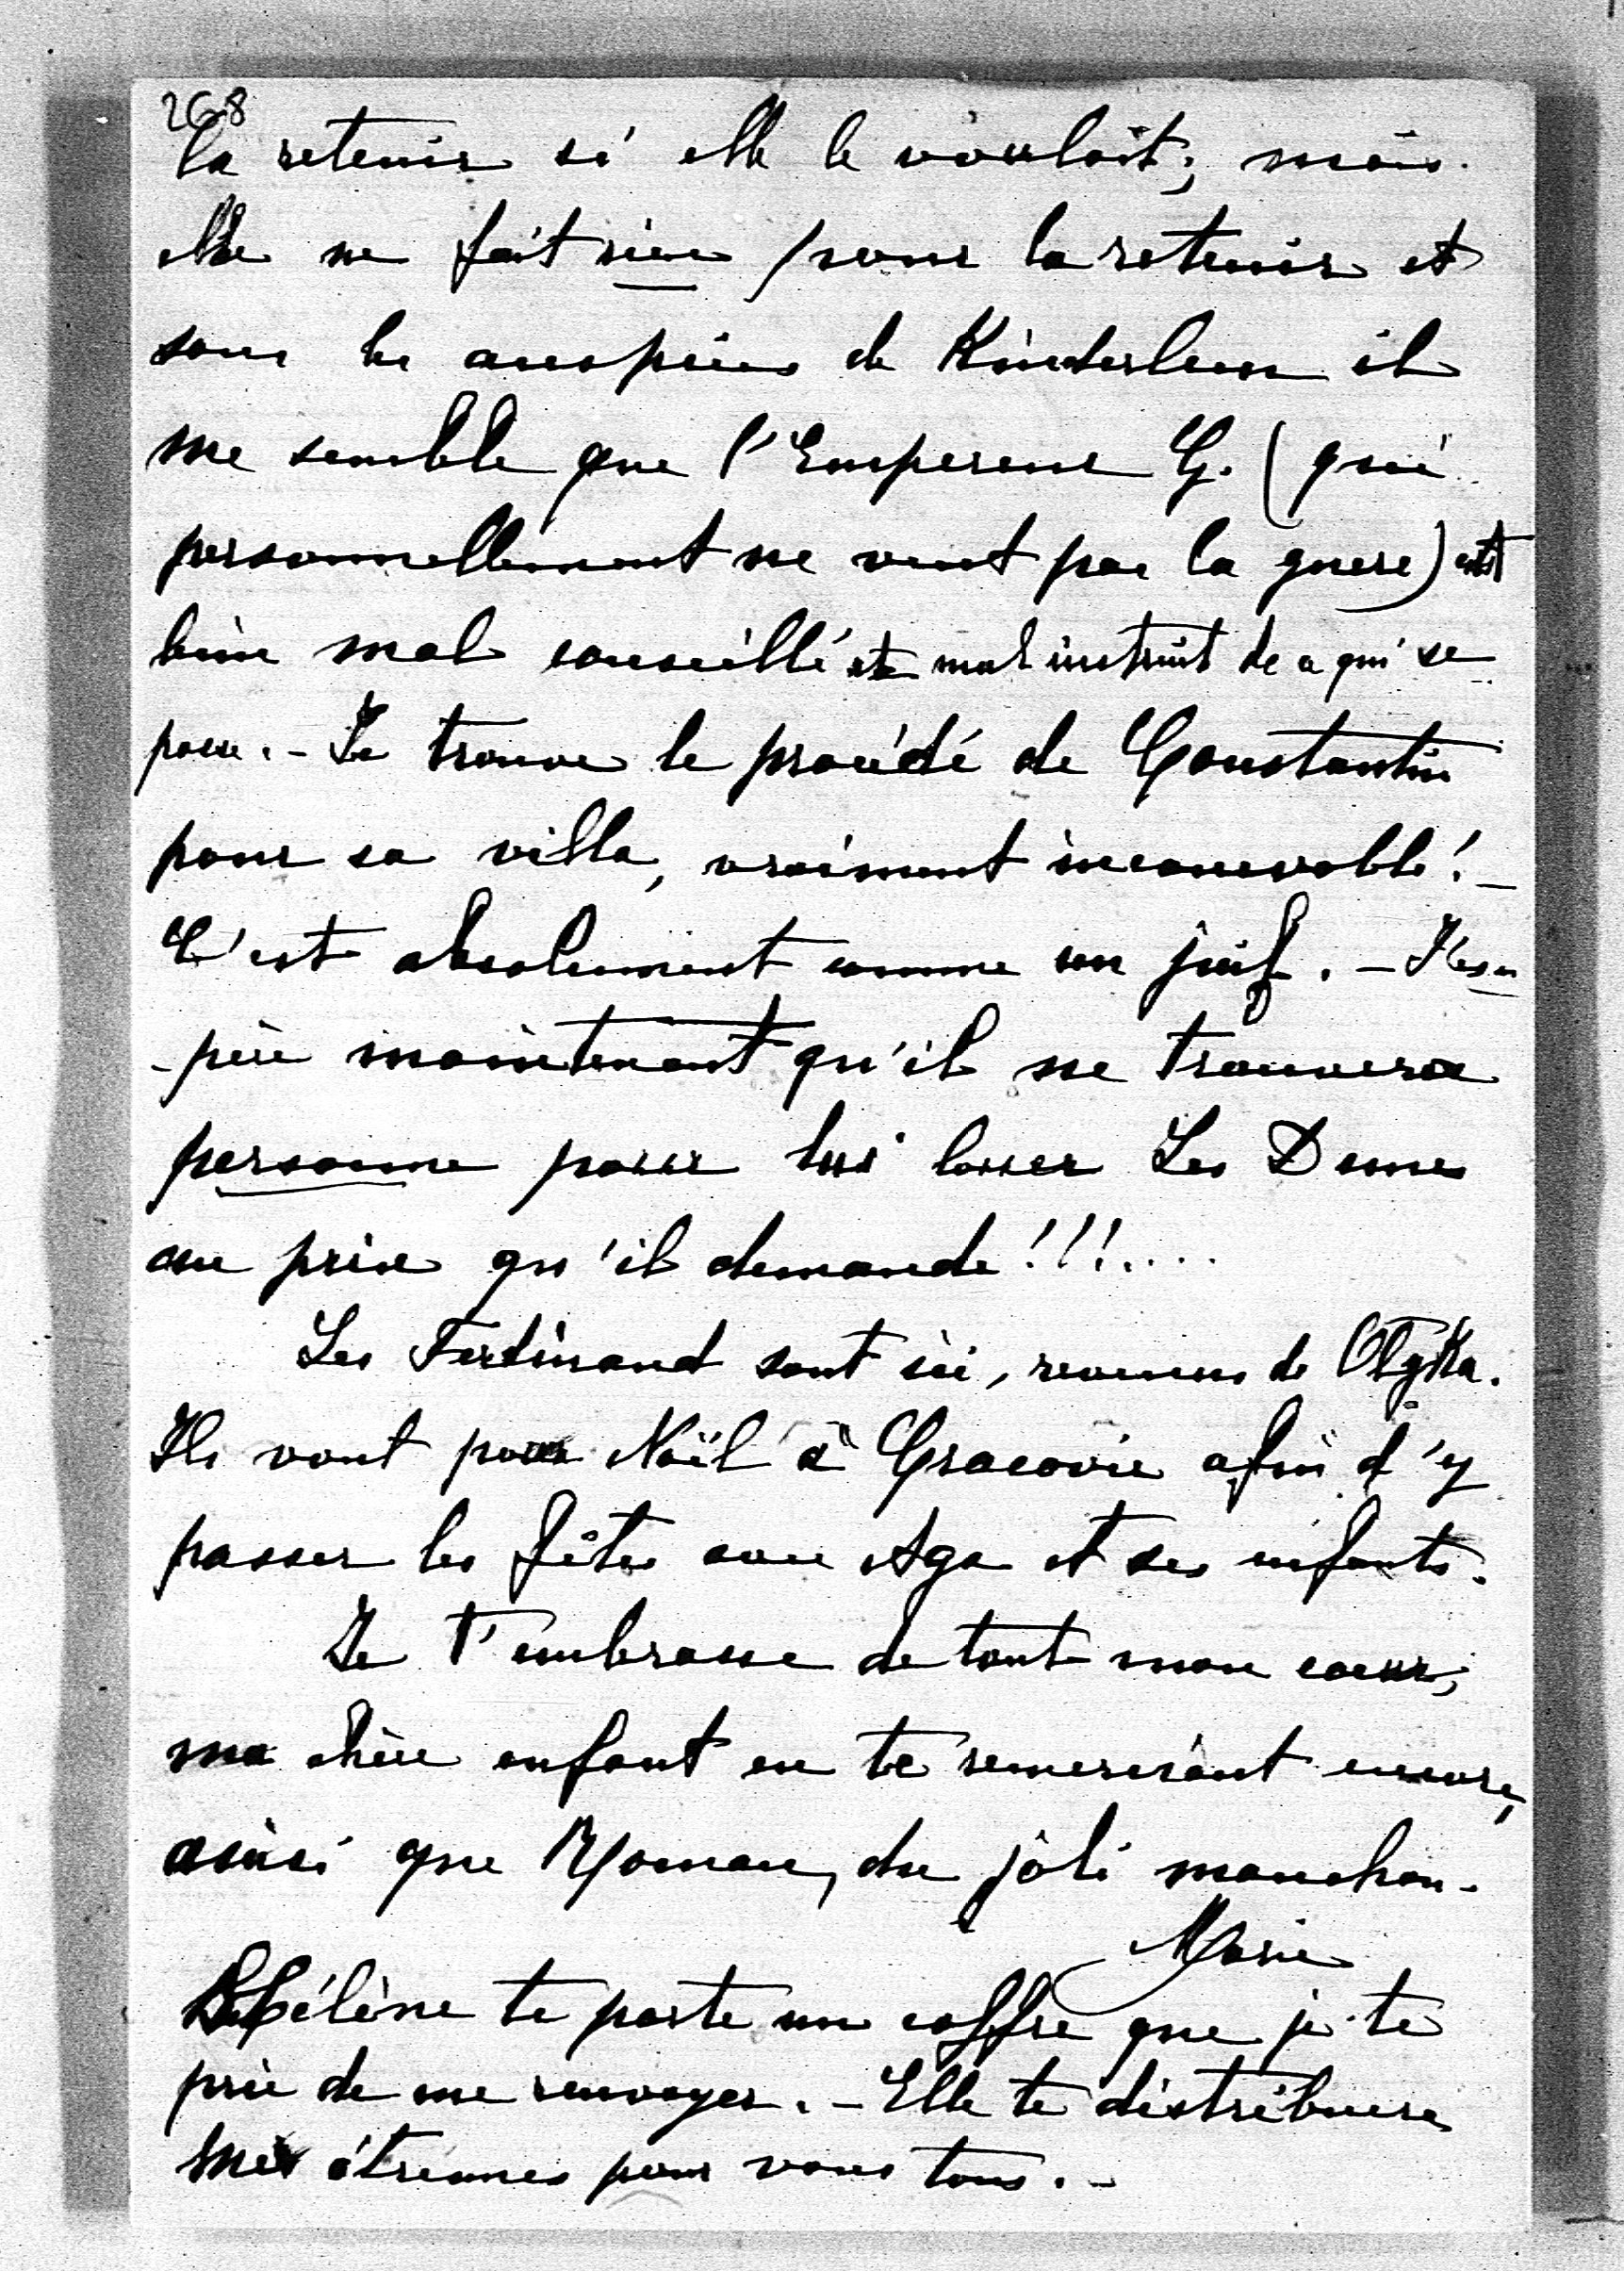 268
la retenir si elle le voulait; mais
elle ne fait rien pour la retenir et
sous les auspices de Kinderleen il
me semble que l'Empereur G. (qui
personnellement ne veut pas la guere) est
bien mal conseillé et mal instruit de ce qui se
passe. – Je trouve le procédé de Constantin
pour sa villa, vraiment inconcevable! –
C'est absolument comme un juif. – J'es-
-père maintenant qu'il ne trouvera
personne pour lui louer Les Dunes
au prix qu'il demande!!!....
Les Ferdinand sont ici, revenus de Olyka.
Ils vont pour Noël à Cracovie afin d'y
passer les fêtes avec Aga et ses enfants.
Je t'embrasse de tout mon coeur,
ma chère enfant en te remerciant encore,
ainsi que Roman, du joli manchon.
Marie
Bichette
Hélène te porte un coffre que je te
prie de me renvoyer. – Elle te distribuera
mes étrennes pour vous tous. –